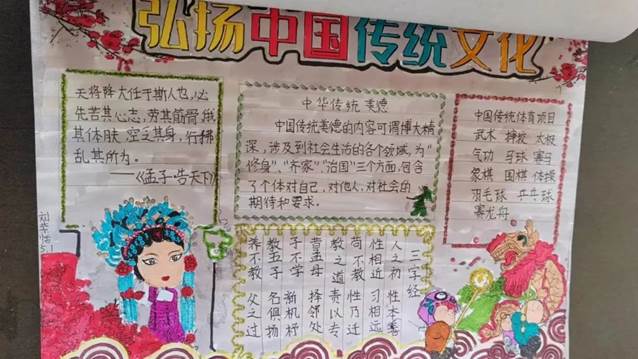 弘扬中国传统文化
天将降大任于斯人也,必
先苦其心志,劳其筋骨,饿
其体肤,空乏其身,行拂
乱其所为。
——《孟子·告天下》
中华传统美德
中国传统美德的内容可谓博大精
深,涉及到社会生活的各个领域,为“
修身”、“齐家”、“治国”三个方面,包含
了个体对自己,对他人,对社会的
期待和要求.
中国传统体育项目
武术 摔跤 太极
气功 马球 赛马
象棋 围棋 体操
羽毛球 乒乓球
赛龙舟
三字经
人之初 性本善
性相近 习相远
苟不教 性乃迁
教之道 贵以专
昔孟母 择邻处
子不学 断机杼
教五子 名俱扬
养不教 父之过